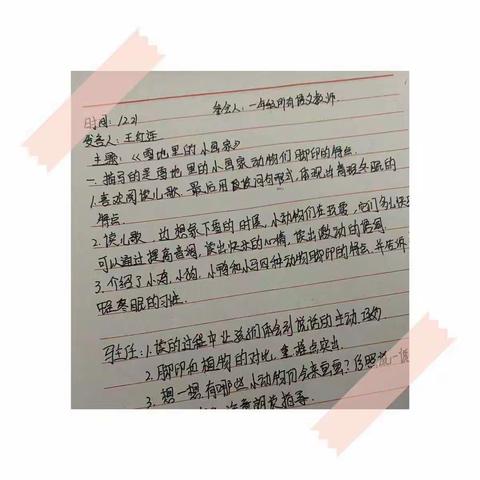 时间: 12.21
参会人: 一年级所有语文教师.
发言人: 王红连
主题:《雪地里的小画家》
一. 描写的是雪地里的小画家动物们脚印的特点.
1. 喜欢阅读儿歌. 最后用
形式, 体现出青蛙冬眠的
特点.
2. 读儿歌, 边想象下雪的时候, 小动物们在玩雪, 它们多么快乐
可以通过提高音调, 读出快乐的心情, 读出激动的语调
3. 介绍了小鸡, 小狗, 小鸭和小马四种动物脚印的特点. 并告诉
冬眠的习性.
1. 读的过程中让孩们体会到说话的生动巧妙
2. 脚印和植物的对比, 重难点突出.
3. 想一想, 有哪些小动物们会来画画? 仿照说一说
注意朗读指导.